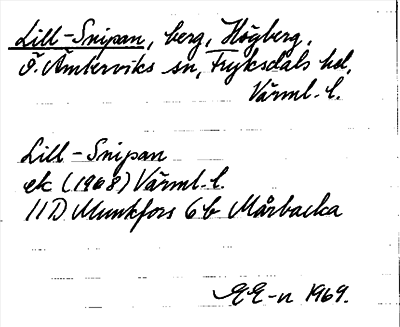 Lill-Snipan, berg, Högberg.
Ö. Ämterviks sn, Fryksdals hd,
Värml. l.
Lill-Snipan
ek (1968) Värml. l.
11D Munkfors 6b Mårbacka
EE-n 1969.